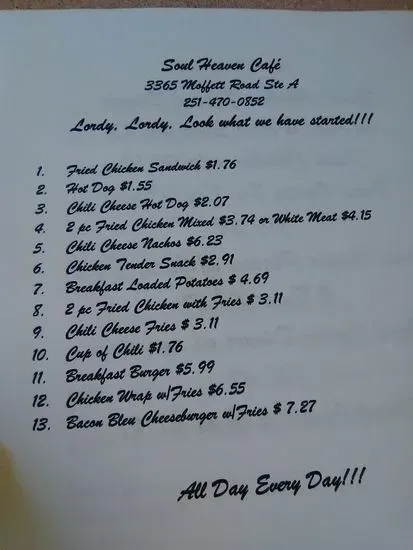 Soul Heaven Café
3365 Moffett Road Ste A
251-470-0852
Lordy, Lordy, Look what we have started!!!
1. Fried Chicken Sandwich $1.76
2. Hot Dog $1.55
3. Chili Cheese Hot Dog $2.07
4. 2 pc Fried Chicken Mixed $3.74 or White Meat $4.15
5. Chili Cheese Nachos $6.23
6. Chicken Tender Snack $2.91
7. Breakfast Loaded Potatoes $ 4.69
8. 2 pc Fried Chicken with Fries $ 3.11
9. Chili Cheese Fries $ 3.11
10. Cup of Chili $1.76
11. Breakfast Burger $5.99
12. Chicken Wrap w/Fries $6.55
13. Bacon Bleu Cheeseburger w/Fries $ 7.27
All Day Every Day!!!